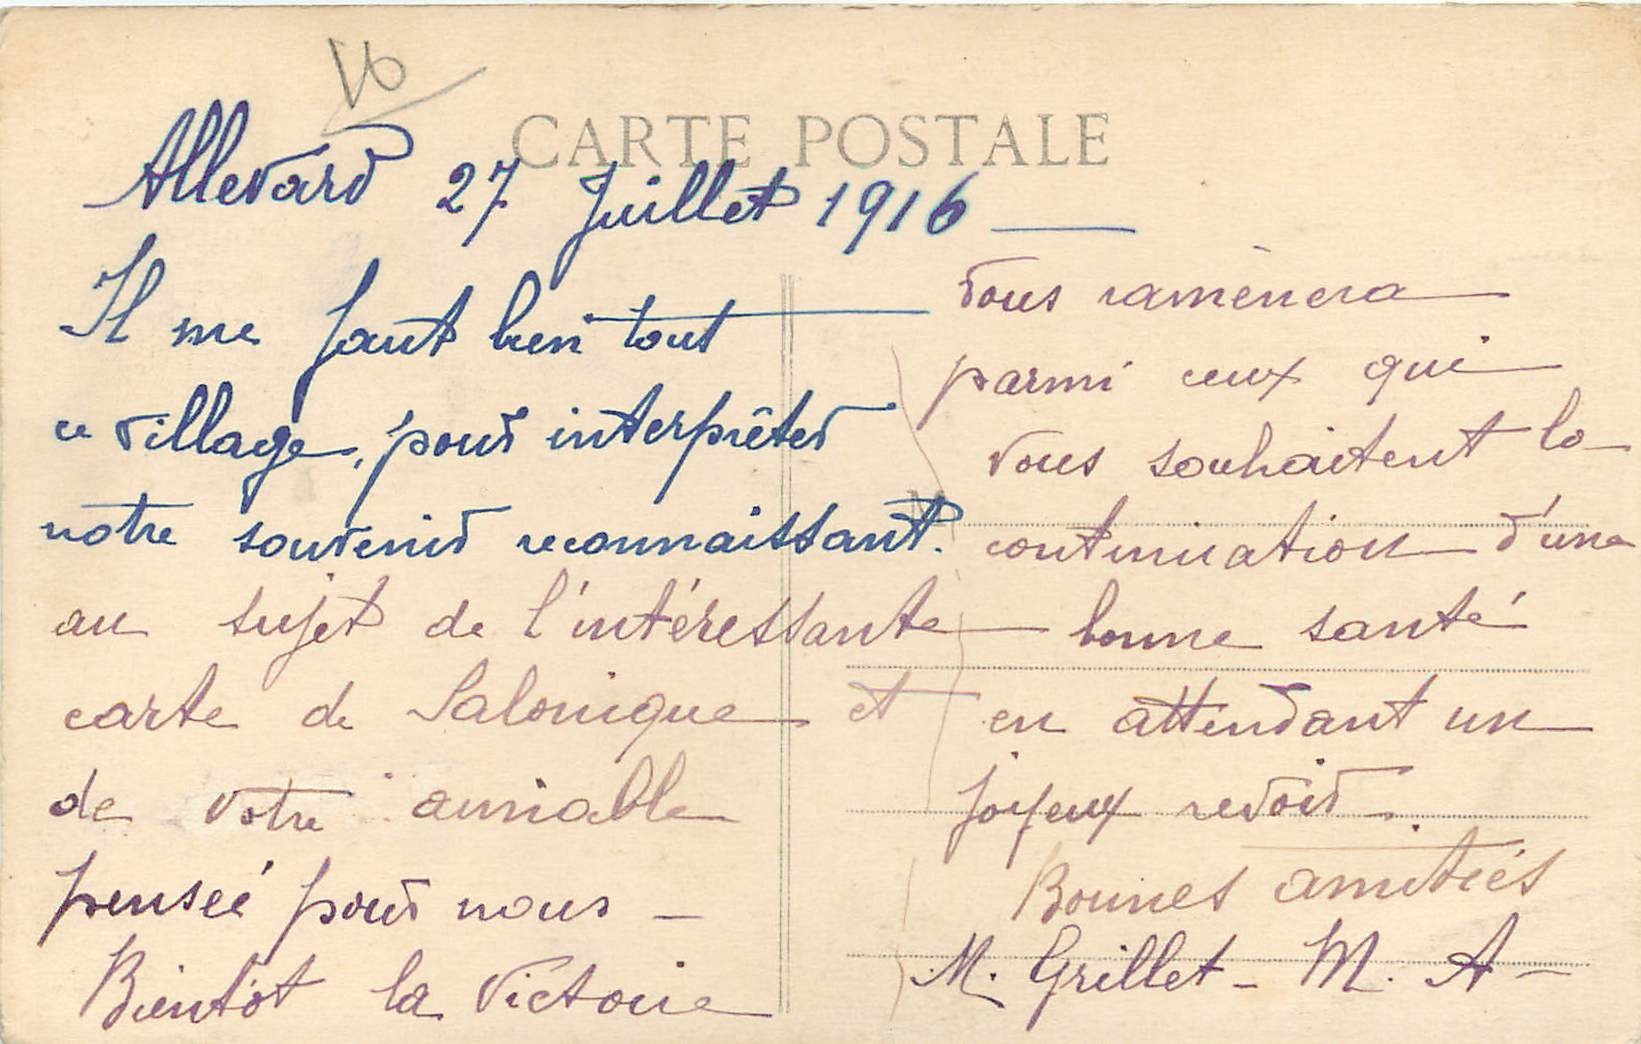 V6
CARTE POSTALE
Allevard 27 Juillet 1916
Il me faut bien tout
ce village, pour interprêter
notre souvenir reconnaissant.
au sujet de l'intéressante
carte de Salonique et
de votre aimable
pensée pour nous -
Bientôt la Victoire
vous ramènera
parmi ceux qui
vous souhaitent la
continuation d'une
bonne santé
en attendant un
joyeux revoir.
Bonnes amitiés
M. Grillet - M. A -